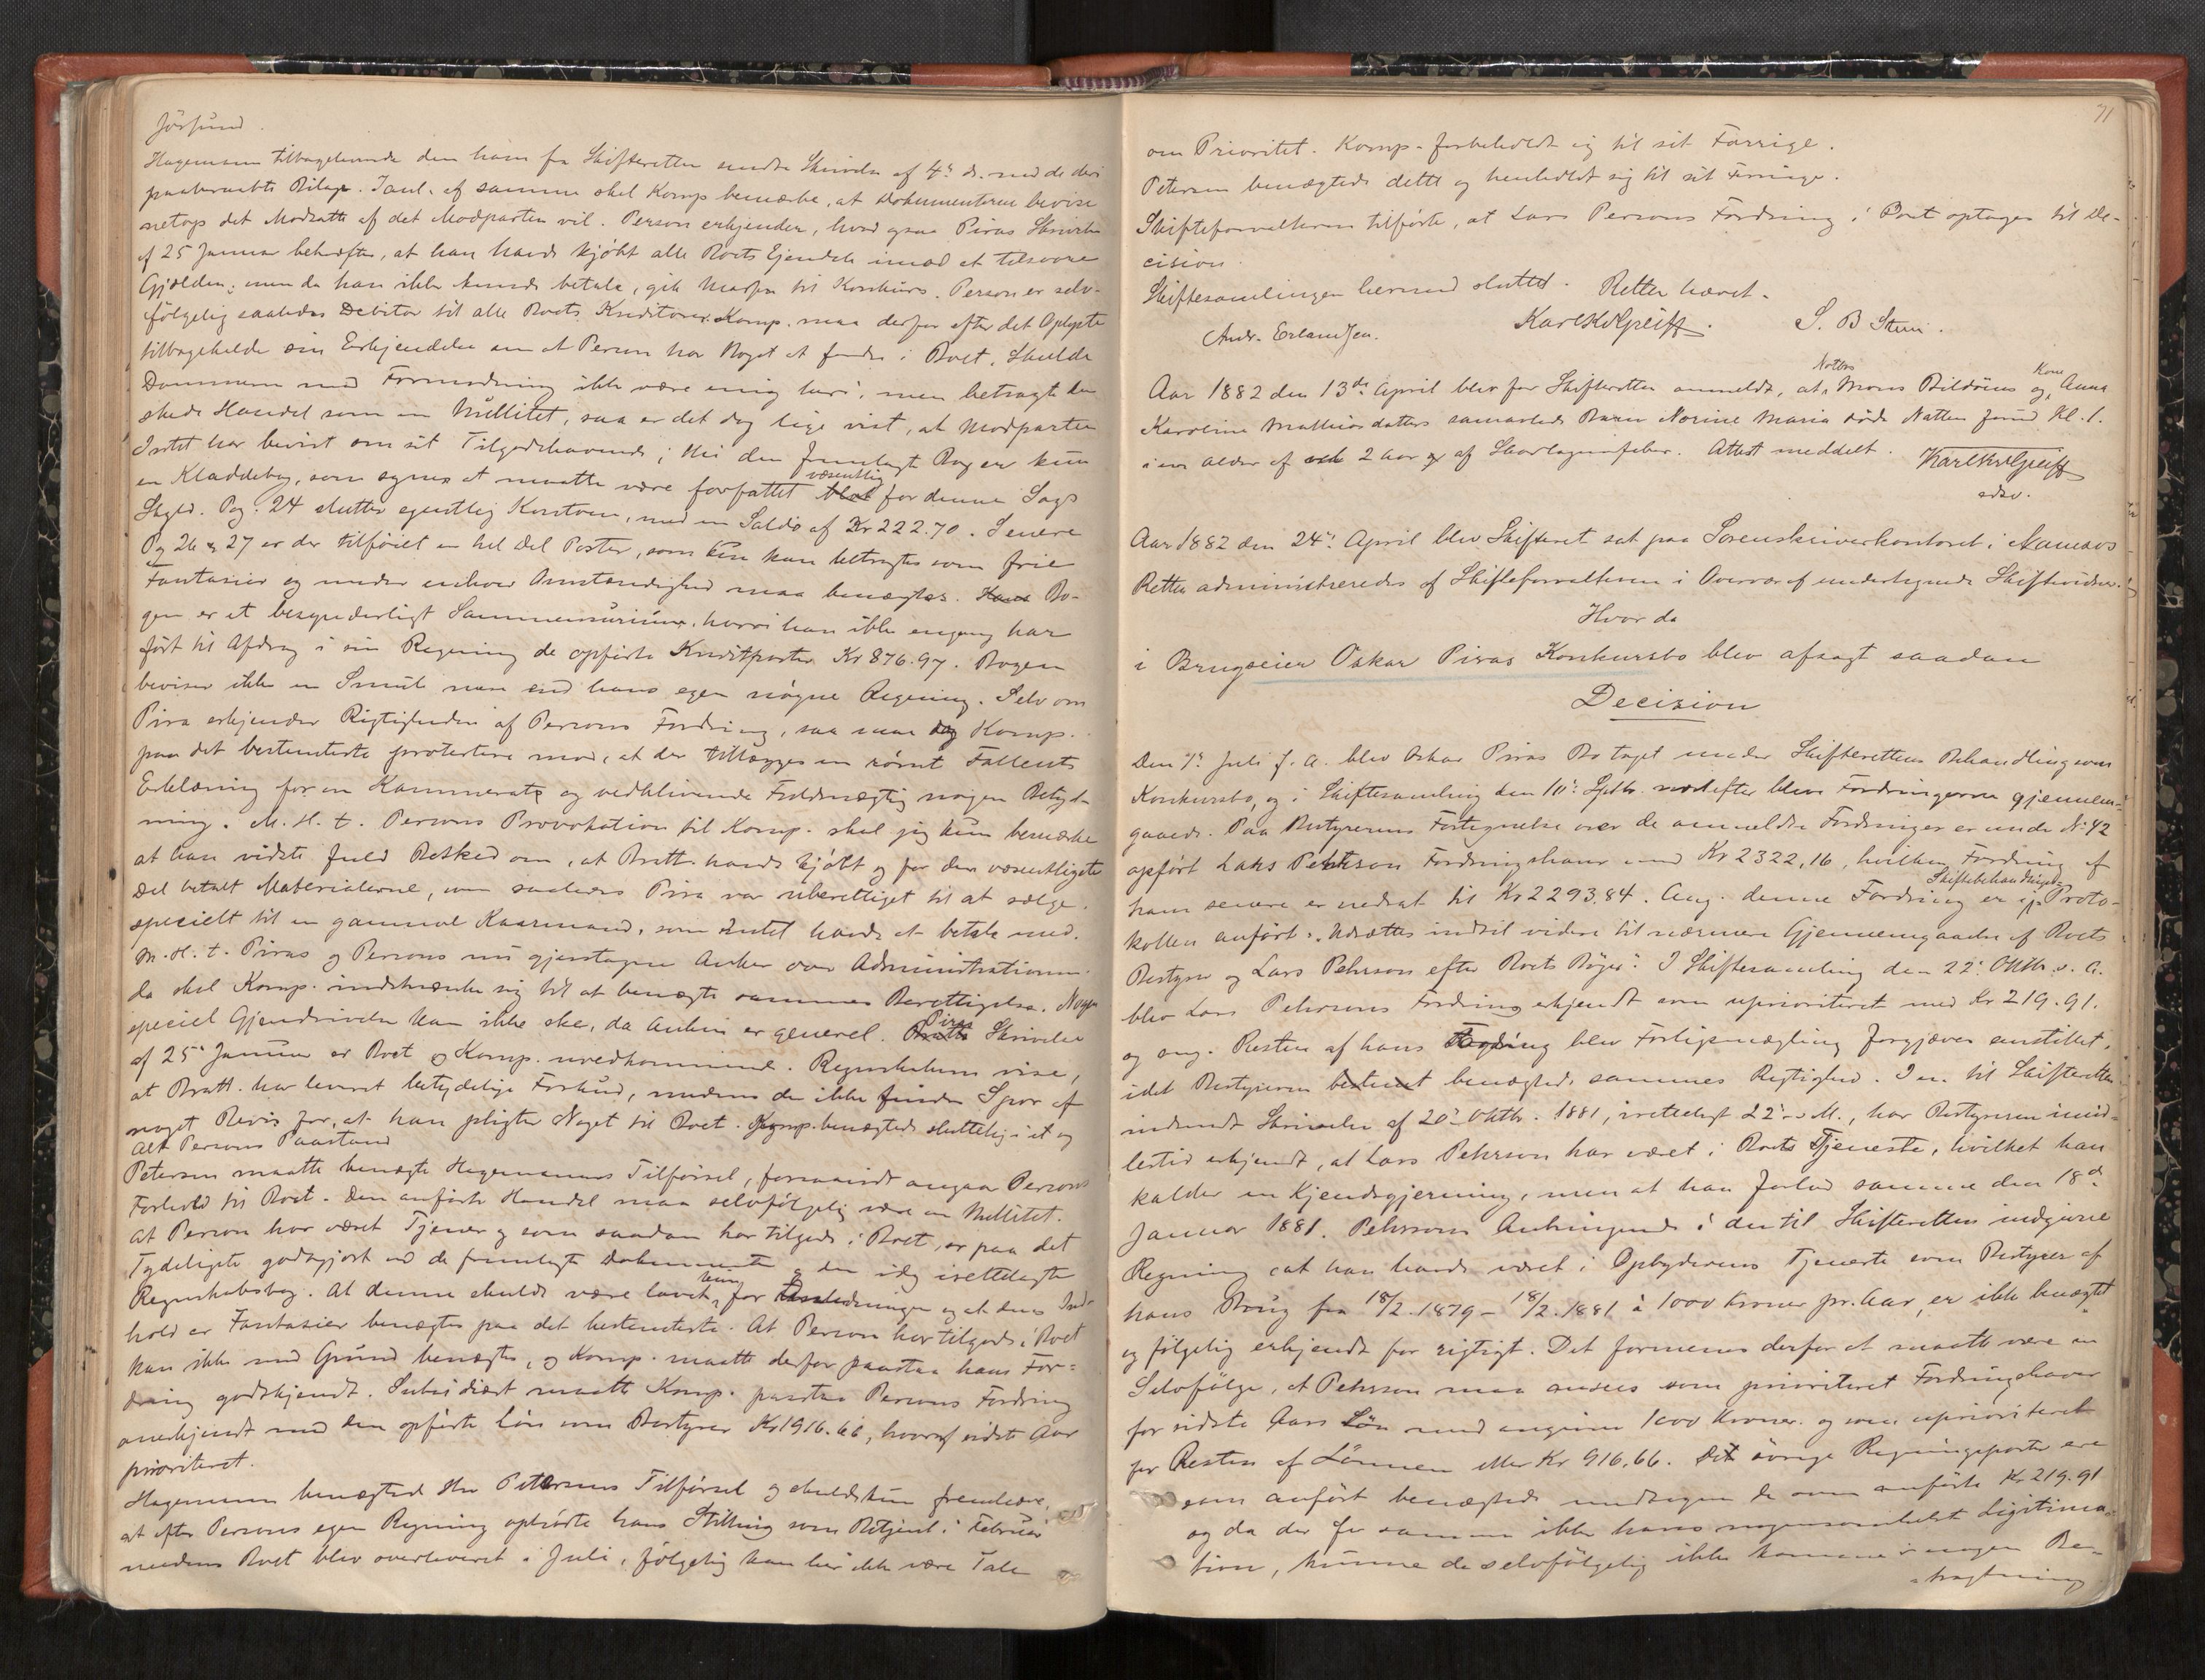 Jøssund.
Hagemann tilbageleverede den ham fra Skifteretten sendte Skrivelse af 4de ds. med de deri
paaberaabte Bilage. I anl. af samme skal Komp bemærke, at Dokumenterne bevise
netop det Modsatte af det Modparten vil. Person erkjender, hvad ogsaa Piras Skrivelse
af 25 Januar bekræfter, at han havde kjøbt alle Boets Ejendele imod at tilsvare
Gjælden; men da han ikke kunde betale, gik Massen til Konkurs. Person er selv-
følgelig saaledes Debitor til alle Boets Kreditorer. Komp. maa derfor efter det Oplyste
tilbageholde sin Erkjendelse om at Person har Noget at fordre i Boet. Skulde
Dommeren mod Formodning ikke være enig heri, men betragte den
skede Handel som en Nullitet, saa er det dog lige vist, at Modparten
Intet har bevist om sit Tilgodehavende; thi den fremlagte Bog er kun
en Kladdebog, som synes at maatte være forfattet væsentlig for denne Sags
Skyld. Pag. 24 slutter egentlig Kontoen, med en Saldo af Kr 222.70. Senere
Pg 26 & 27 er der tilføiet en hel Del Poster, som kun kan betragtes som frie
Fantasier og under enhver Omstændighed maa benægtes. Bo-
gen er et besynderligt Sammensurium, hvori han ikke engang har
ført til Afdrag i sin Regning de opførte Kreditposter Kr 876.97. Bogen
beviser ikke en Smule mere end hans egen nøgne Regning. Selv om
Pira erkjender Rigtigheden af Persons Fordring, saa maa dog Komp.
paa det bestemteste protestere mod, at der tillægges en rømt Fallents
Erklæring for en Kammerat og vedblivende Fuldmægtig nogen Betyd-
ning. M. H. t. Persons Provokation til Komp. skal jeg kun bemærke
at han vidste fuld Besked om, at Bratt havde kjøbt og for den væsentligste
Del betalt Materialerne, som saaledes Pira var uberettiget til at sælge.
specielt til en gammel Kaarmand, som Intet havde at betale med.
M. H. t. Piras og Persons nu gjentagne Anker over Administrationen
da skal Komp. indskrænke sig til at benægte sammes Berettigelse. Nogen
speciel Gjendrivelse kan ikke ske, da Anken er generel. Piras Skrivelse
af 25 Januar er Boet og Komp. uvedkommende. Regnskaberne vise,
at Bratt. har leveret betydelige Forskud, medens der ikke findes Spor af
noget Bevis for, at han pligter Noget til Boet. Komp. benægtede sluttelig i et og
alt Persons Paastand
Petersen maatte benægte Hagemanns Tilførsel, forsaavidt angaar Persons
Forhold til Boet. Den anførte Handel maa selvfølgelig være en Nullitet.
At Person har været Tjener og som saadan har tilgode i Boet, er paa det
Tydeligste godtgjort ved de fremlagte Dokumenter og den idag irettelagte
Regnskabsbog. At denne skulde være lavet kun for Anledningen og at dens Ind-
hold er Fantasier benægtes paa det bestemteste. At Person har tilgode i Boet
kan ikke med Grund benægtes, og Komp. maatte derfor paastaa hans For-
dring godkjendt. Subsidiært maatte Komp. paastaa Persons Fordring
anerkjendt med den opførte Løn som Bestyrer Kr 1916.66, hvoraf sidste Aar
prioriteret.
Hagemann benægtede Hr Petersens Tilførsel og skulde kun fremhæve,
at efter Persons egen Regning ophørte hans Stilling som Betjent i Februar
medens Boet blev overleveret i Juli, følgelig kan her ikke være Tale
71
om Prioritet. Komp. forbeholdt sig til sit Forrige.
Petersen benægtede dette og henholdt sig til sit Forrige.
Skifteforvalteren tilførte, at Lars Persons Fordring i Boet optages til De-
cision.
Skiftesamlingen hermed sluttet. Retten hævet.
Andr. Erlandsen. Karl Greiff. S. B Steen.
Aar 1882 den 13de April blev for Skifteretten anmeldt, at Mons Bildøens og Kone Anna
Karoline Mathiasdatters Barn Norine Maria døde Natten forud Kl. 1.
i en Alder af 2 Aar af Skarlagensfeber. Attest meddelt. Karl Greiff
edsv.
Aar 1882 den 24de April blev Skifteret sat paa Sorenskriverkontoret i Namsos
Retten administreredes af Skifteforvalteren i Overvær af undertegnede Skiftevidner.
Hvor da
i Brugseier Oskar Piras Konkursbo blev afsagt saadan
Decision
Den 7de Juli f. A. blev Oskar Piras Bo taget under Skifterettens Behandling som
Konkursbo, og i Skiftesamling den Septbr. næstefter bleve Fordringerne gjennem-
gaaede. Paa Bestyrerens Fortegnelse over de anmeldte Fordringer er under No 42
opført Lars Pehrson Fordringshaver med Kr 2322,16, hvilken Fordring af
ham senere er nedsat til Kr 2293.84. Ang. denne Fordring er i Skiftebehandlings Proto-
kollen anført: "Udsættes indtil videre til nærmere Gjennemgaaelse af Boets
Bestyrer og Lars Pehrson efter Boets Bøger". I Skiftesamling den 22de Oktbr. s. A.
blev Lars Pehrsons Fordring erkjendt som uprioriteret med Kr 219.91.
og ang. Resten af hans Fordring blev Forligsmægling forgjæves anstillet,
idet Bestyreren bestemt benægtede sammes Rigtighed. I en til Skifteretten
indsendt Skrivelse af 20de Oktbr. 1881, irettelagt 22de s. M., har Bestyreren imid-
lertid erkjendt, at Lars Pehrson har været i Boets Tjeneste, hvilket han
kalder en Kjendsgjerning, men at han forlod samme den 18de
Januar 1881. Pehrsons Anbringende i den til Skifteretten indgivne
Regning at han havde været i Opbyderens Tjeneste som Bestyrer af
hans Brug fra 18/2. 1879 – 18/2. 1881 à 1000 Kroner pr. Aar, er ikke benægtet
og følgelig erkjendt for rigtigt. Det formenes derfor at maatte være en
Selvfølge, at Pehrson maa ansees som prioriteret Fordringshaver
for sidste Aars Løn med angivne 1000 Kroner og som uprioriteret
for Resten af Lønnen eller Kr 916.66. De øvrige Regningsposter ere
som anført benægtede undtagen de ovenanførte Kr 219.91
og da der for samme ikke haves nogensomhelst Legitima-
tion, kunne de selvfølgelig ikke komme i nogen Be-
tragtning